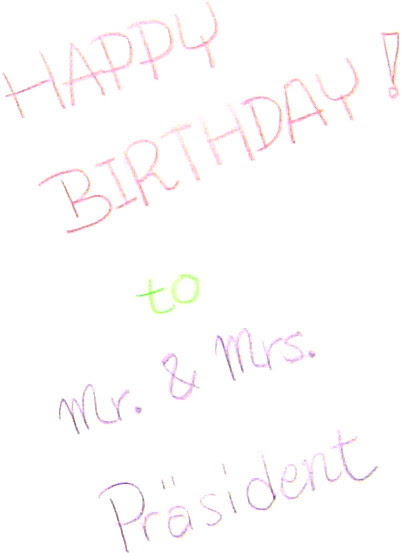 HAPPY
BIRTHDAY!
to
Mr. & Mrs.
Präsident